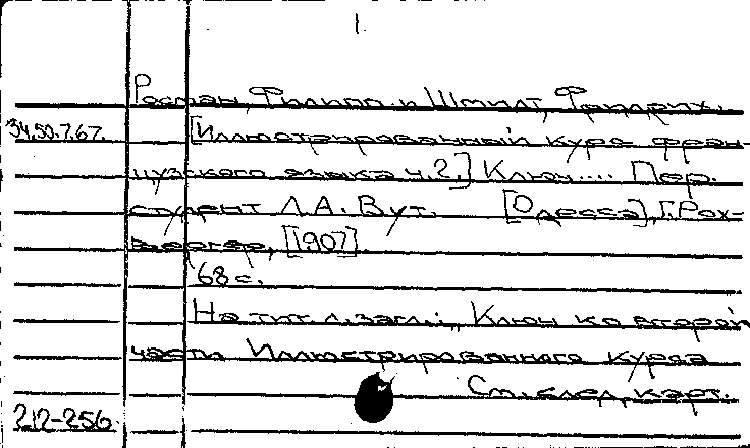 1.
Росман, Филипп и Шмидт, Фридрих.
34.50.7.67.
[Иллюстрированный курс фран-
цузского языка ч.2.] Ключ.... Пер.
студент Л.А. Вут. [Одесса], Г. Рох-
бергер, [1907].
68 с.
На тит. л. загл.: „Ключ ко второй
части Иллюстрированного курса
См. след. карт.
212-256